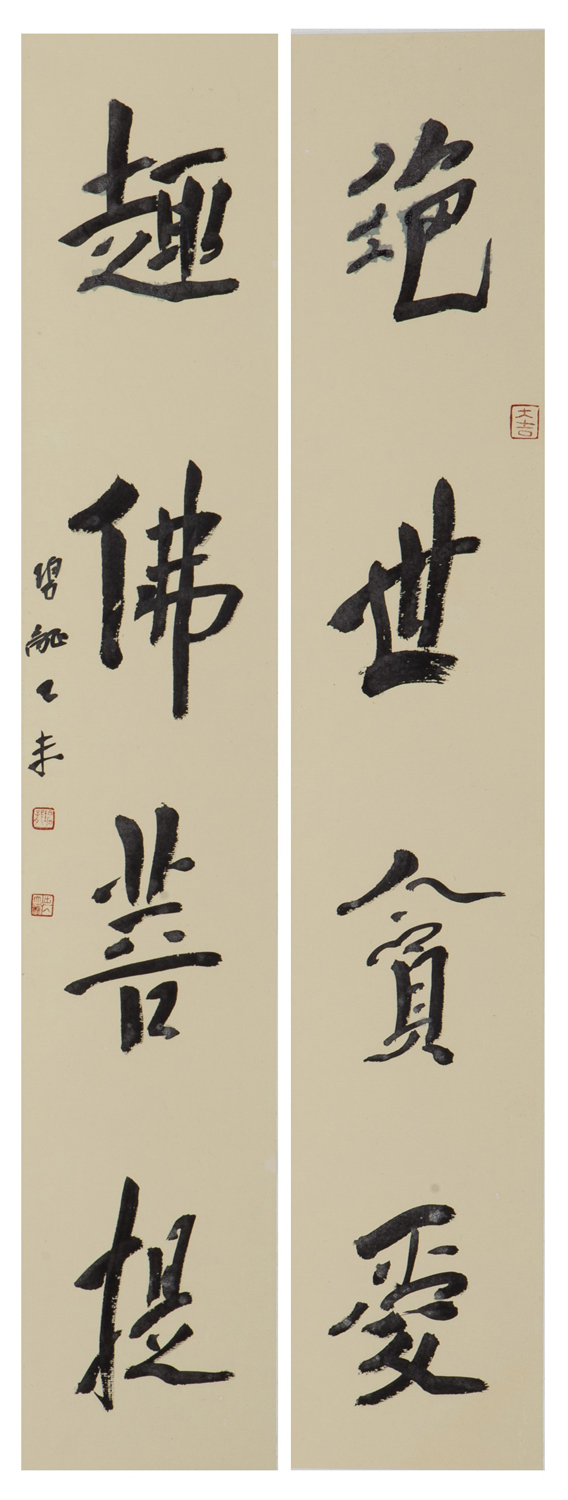 絶世貪愛
大吉
趣佛菩提
乙未